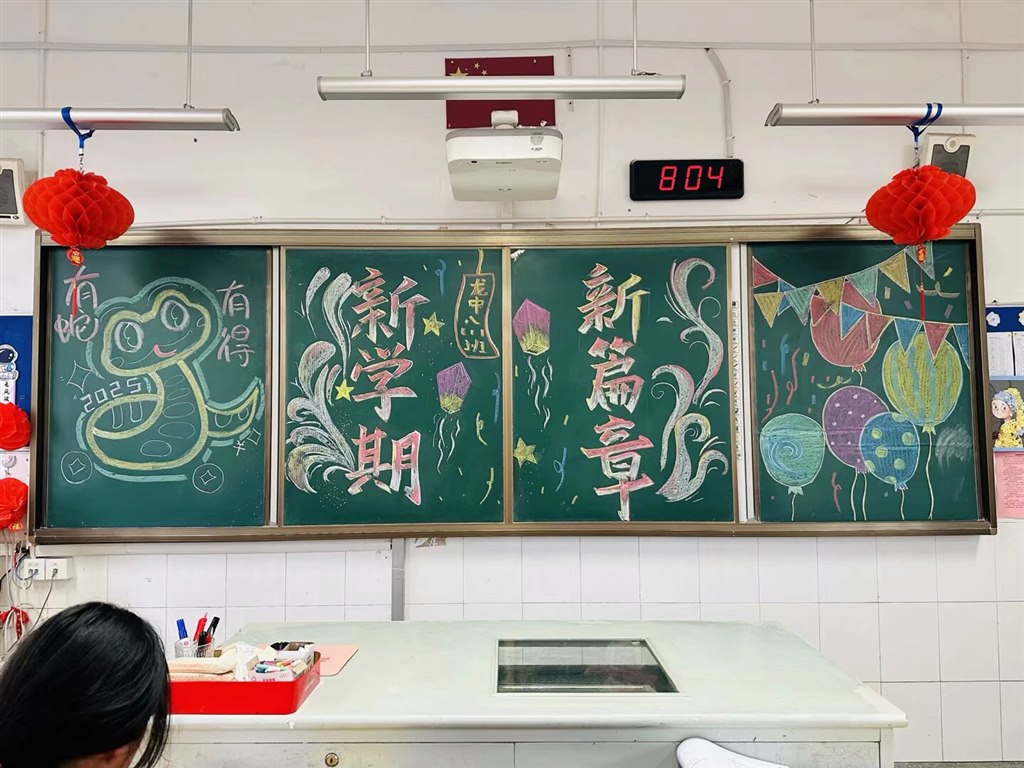 804
有蛇
有得
2025
新学期
龙中八八班
新篇章